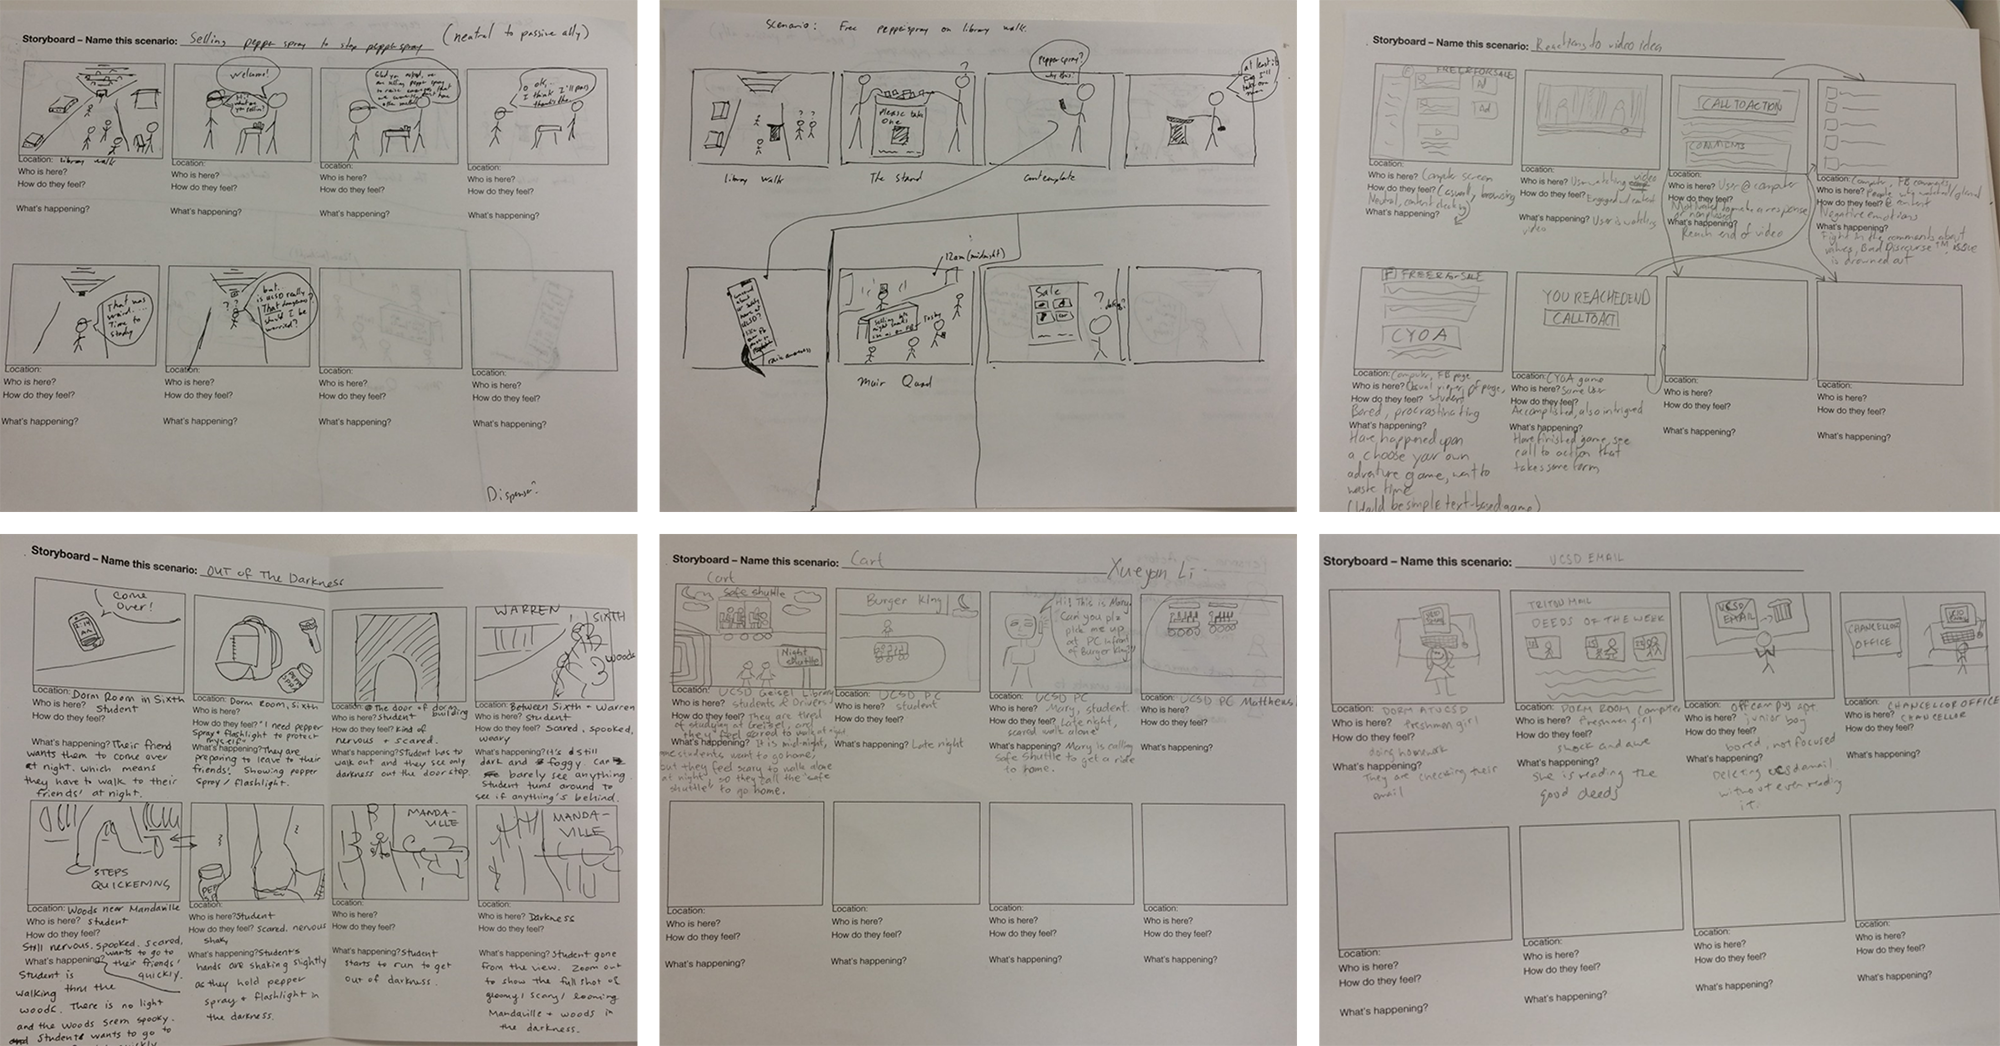 Storyboard – Name this scenario: Selling pepper spray to stop pepper spray (neutral to passive ally)
Welcome!
Hi! what are you selling?
O ok.. I think I'll pass thanks tho..
Location: library walk
Who is here?
How do they feel?
What's happening?
Location:
Who is here?
How do they feel?
What's happening?
Location:
Who is here?
How do they feel?
What's happening?
Location:
Who is here?
How do they feel?
What's happening?
That was weird.... Time to study
but.. is UCSD really That dangerous? should I be worried?
Location:
Who is here?
How do they feel?
What's happening?
Location:
Who is here?
How do they feel?
What's happening?
Location:
Who is here?
How do they feel?
What's happening?
Location:
Who is here?
How do they feel?
What's happening?
Dispenser?
Scenario: Free pepperspray on library walk.
Please take one
?
pepper spray? why this?
library walk
The stand
Contemplate
12am (midnight)
raise awareness
Sale
?
Muir Quad
Storyboard – Name this scenario: Reactions to video idea
FREE & FOR SALE
Ad
CALL TO ACTION
COMMENTS
Location:
Who is here? Computer screen
How do they feel? Casual, browsing
Neutral, content checking
What's happening?
Location:
Who is here? User watching video
How do they feel? Engaged w/ content
What's happening? User is watching video
Location:
Who is here? User @ computer
How do they feel?
Motivated to make a response or nonplussed
What's happening?
Reach end of video
Location: Computer, FB comments
Who is here? People who watched/glanced
How do they feel? @ content
Negative emotions
What's happening?
Fight in the comments about video, Bad Discourse™, issue is drowned out
FREE & FOR SALE
CYOA
YOU REACHED END
CALL TO ACT
Location: Computer, FB page
Who is here? Casual viewer, of page, student
How do they feel?
Bored, procrastinating
What's happening?
Have happened upon
a choose your own
adventure game, want to
waste time
(Would be simple text-based game)
Location: CYOA game
Who is here? Some User
How do they feel?
Accomplished, also intrigued
What's happening?
Have finished game, see
call to action that
takes some form
Location:
Who is here?
How do they feel?
What's happening?
Location:
Who is here?
How do they feel?
What's happening?
Storyboard – Name this scenario: OUT OF The Darkness
Come over!
WARREN
SIXTH
WOODS
Location: Dorm Room in Sixth
Who is here? Student
How do they feel?
What's happening? Their friend
wants them to come over
at night. which means
they have to walk to their
friends' at night.
Location: Dorm Room, Sixth
Who is here?
How do they feel? "I need pepper
spray + flashlight to protect
myself"
What's happening? They are
preparing to leave to their
friends'. Showing pepper
spray / flashlight.
Location: @ The door of dorm building
Who is here? Student
How do they feel? Kind of
nervous + scared.
What's happening? Student has to
walk out and they see only
darkness out the door step.
Location: Between Sixth - Warren
Who is here? Student
How do they feel? Scared, spooked,
weary
What's happening? It's still
dark and foggy. Can
barely see anything.
Student turns around to
see if anything's behind.
STEPS QUICKENING
MANDA-VILLE
MANDA-VILLE
Location: Woods near Mandaville
Who is here? Student
How do they feel?
Still nervous, spooked, scared,
wants to go to their friends' quickly.
What's happening?
Student is
walking thru the
woods. There is no light
and the woods seem spooky.
Location:
Who is here? Student
How do they feel? Scared, nervous
shaky
What's happening? Student's
hands are shaking slightly
as they hold pepper
spray + flashlight in
the darkness.
Location:
Who is here?
How do they feel?
What's happening? Student
starts to run to get
out of darkness.
Location:
Who is here? Darkness
How do they feel?
What's happening? Student gone
from the view. Zoom out
to show the full shot of
gloomy / scary / looming
Mandaville + woods in
the darkness.
Storyboard – Name this scenario: Cart
Xueyan Li
Cart
Safe shuttle
Night shuttle
Burger King
Hi! This is Mary. Can you plz pick me up at PC infront of Burger King?
Location: UCSD Geisel Library
Who is here? students & Drivers
How do they feel? They are tired
of studying at Geisel, and
they feel scared to walk at night
What's happening? It is mid-night,
some students want to go home,
but they feel scary to walk alone
at night, so they call the safe
shuttle to go home.
Location: UCSD PC
Who is here? student
How do they feel?
What's happening? Late night
Location: UCSD PC
Who is here? Mary, student
How do they feel? late night,
scared walk alone
What's happening? Mary is calling
Safe Shuttle to get a ride
to home.
Location: UCSD PC Matthews
Who is here?
How do they feel?
What's happening?
Location:
Who is here?
How do they feel?
What's happening?
Location:
Who is here?
How do they feel?
What's happening?
Location:
Who is here?
How do they feel?
What's happening?
Location:
Who is here?
How do they feel?
What's happening?
Storyboard – Name this scenario: UCSD EMAIL
TRITON MAIL
DEEDS OF THE WEEK
UCSD EMAIL
CHANCELLOR OFFICE
Location: DORM AT UCSD
Who is here? freshmen girl
How do they feel?
doing homework
What's happening?
They are checking their
email
Location: DORM ROOM computer
Who is here? freshmen girl
How do they feel?
shock and awe
What's happening?
She is reading the
good deeds
Location: off campus apt
Who is here? junior boy
How do they feel?
bored, not focused
What's happening?
Deleting ucsd email
without even reading
it.
Location: CHANCELLOR OFFICE
Who is here? CHANCELLOR
How do they feel?
What's happening?
Location:
Who is here?
How do they feel?
What's happening?
Location:
Who is here?
How do they feel?
What's happening?
Location:
Who is here?
How do they feel?
What's happening?
Location:
Who is here?
How do they feel?
What's happening?